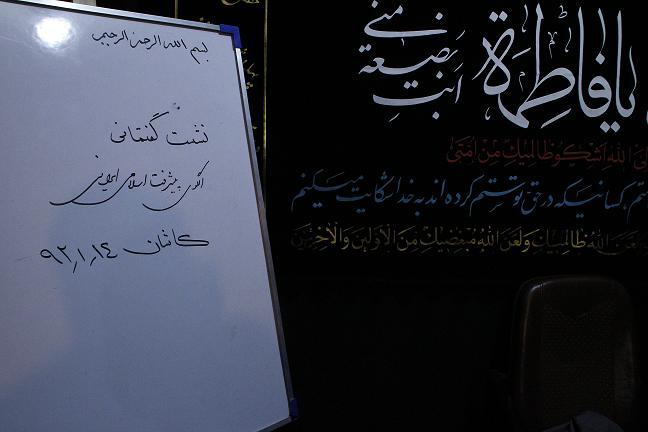 بسم الله الرحمن الرحیم
نشست گفتمانی
الگوی پیشرفت اسلامی ایرانی
کاشان ۹۲٫۱٫۱۴
یا فاطمة
انت بضیعة منی
الله اشکو ظالمیک من امتی
ستم، کسانیکه در حق تو ستم کرده اند به خدا شکایت میکنم
لعن الله ظالمیک ولعن الله مبغضیک من الاولین والاخرین